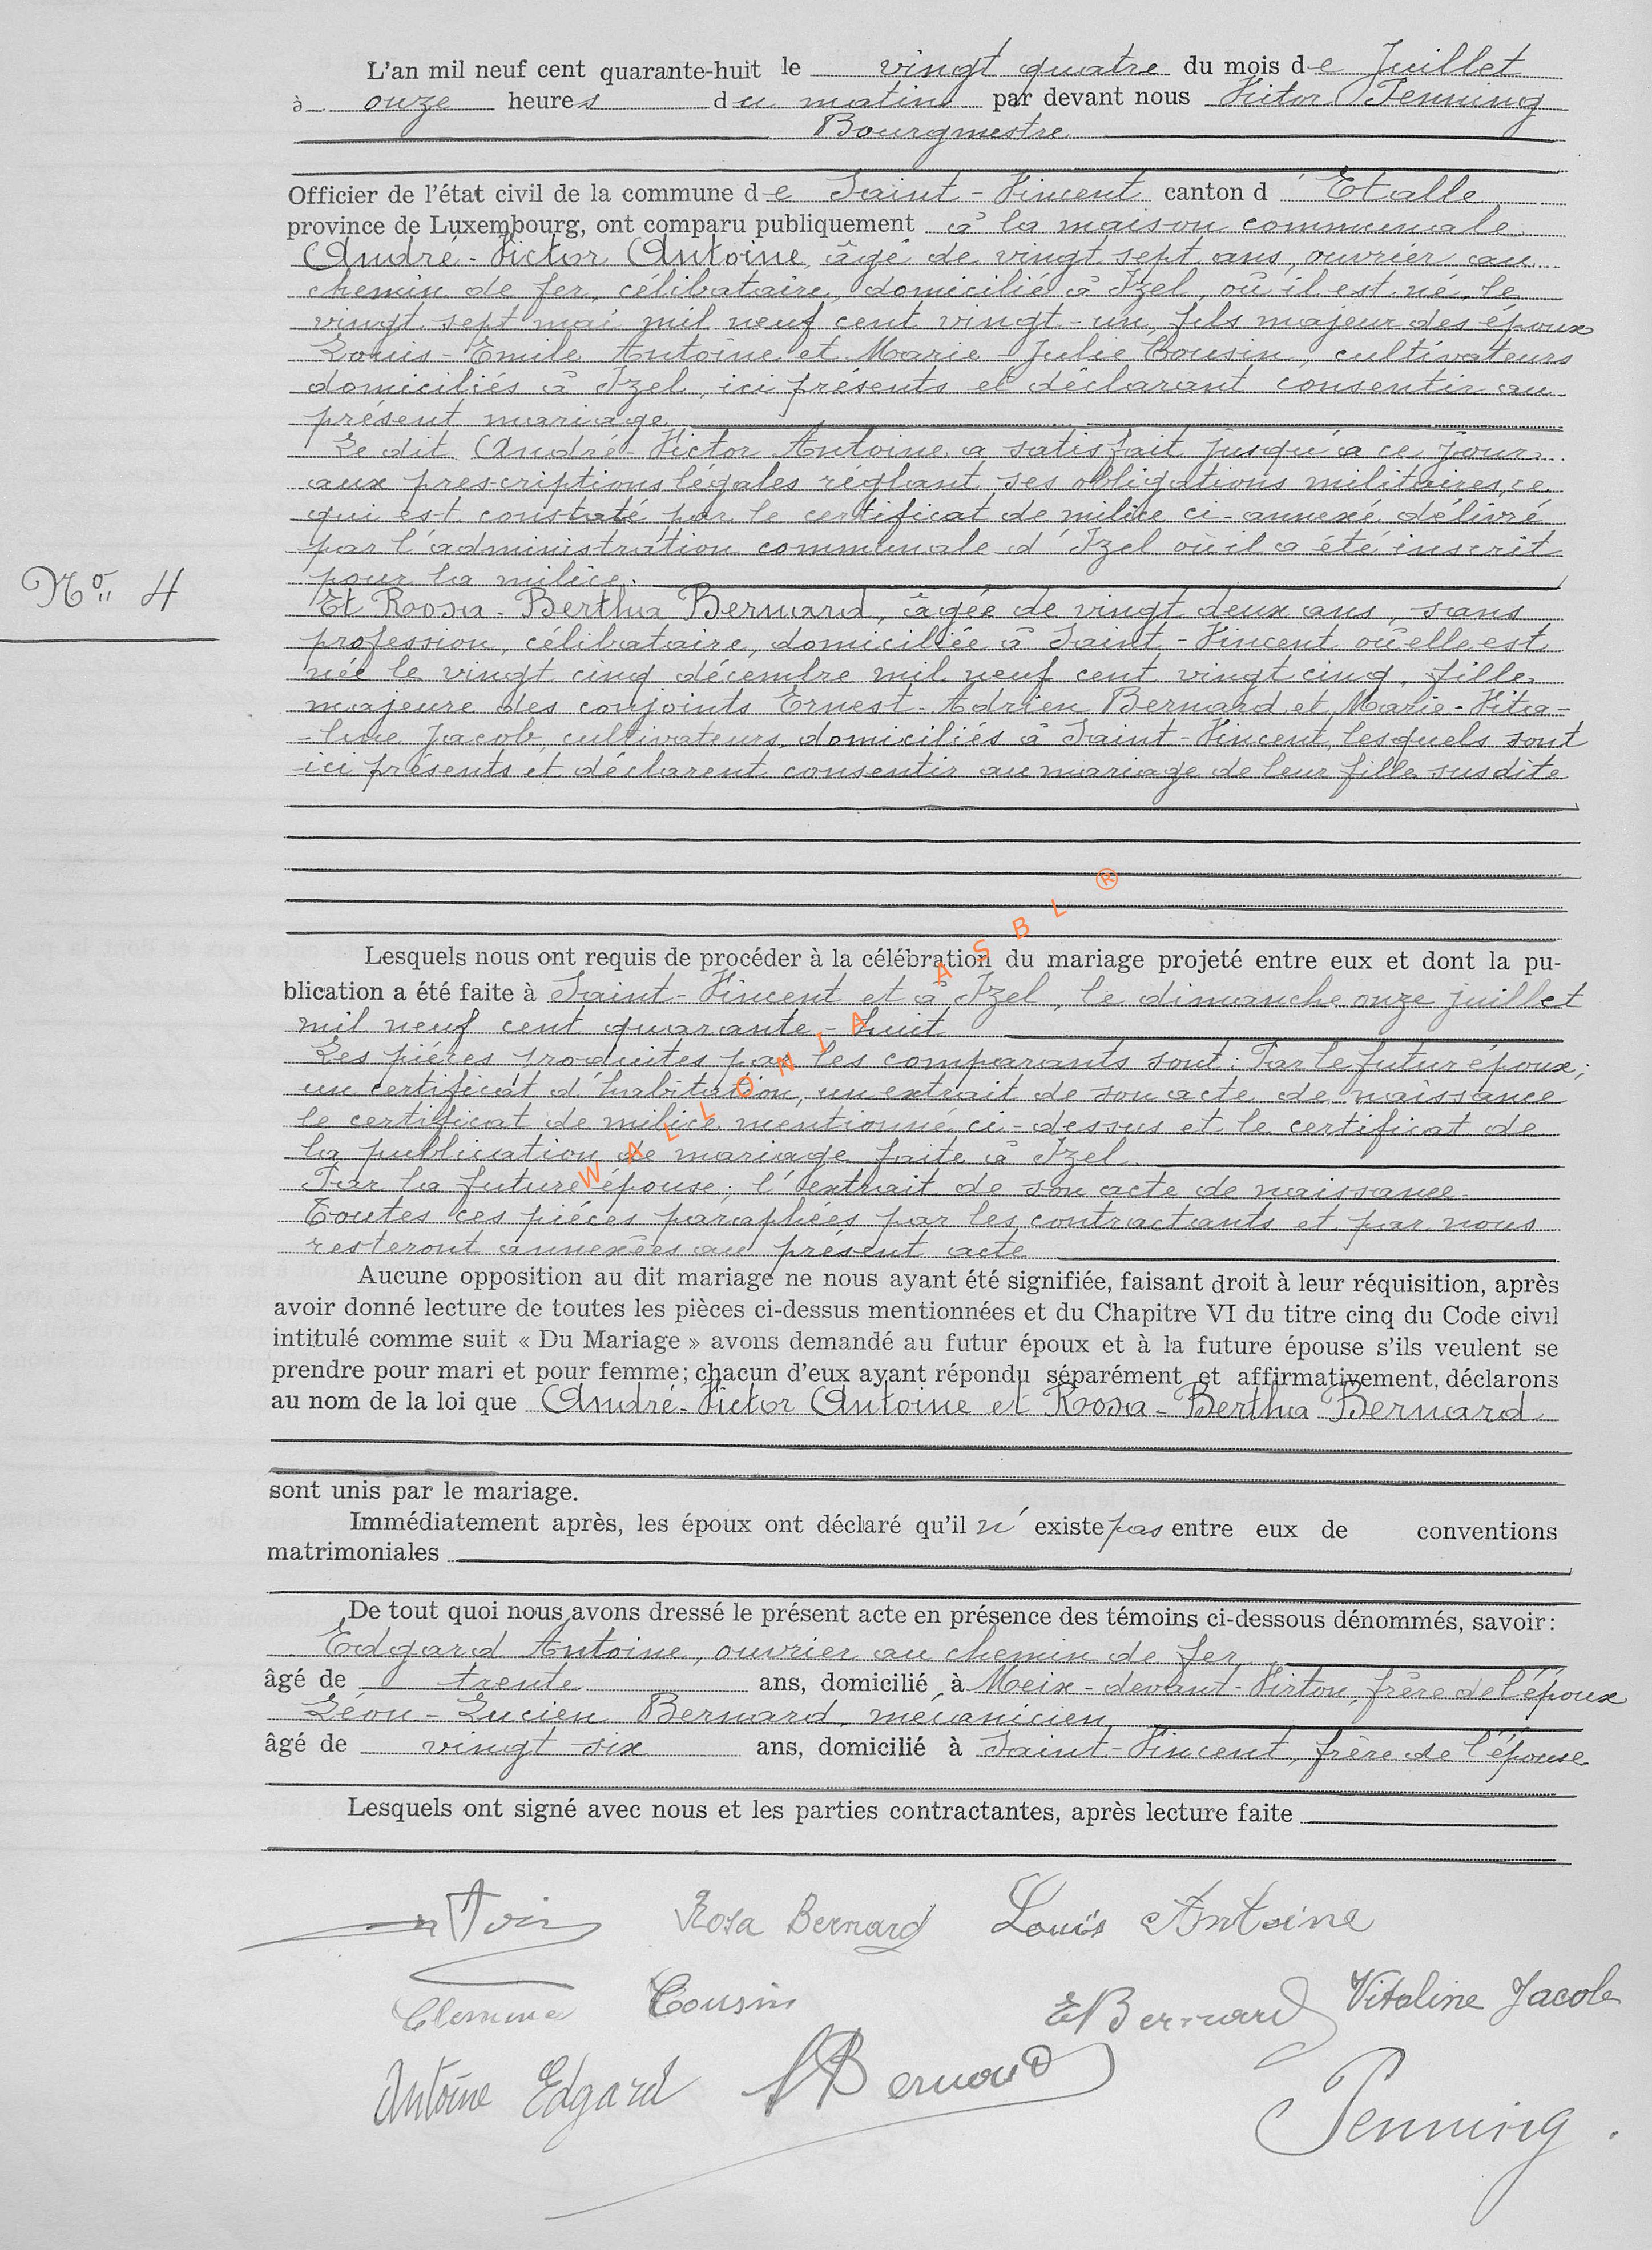 L'an mil neuf cent quarante-huit le vingt quatre du mois de Juillet
à onze heures du matin par devant nous Victor Penning
Bourgmestre
Officier de l'état civil de la commune de Saint-Vincent canton d'Etalle
province de Luxembourg, ont comparu publiquement à la maison communale
André-Victor Antoine, âgé de vingt sept ans, ouvrier au
chemin de fer, célibataire, domicilié à Izel, où il est né, le
vingt sept mai mil neuf cent vingt-un, fils majeur des époux
Louis-Emile Antoine et Marie-Julie Cousin, cultivateurs
domiciliés à Izel, ici présents et déclarant consentir au
présent mariage
Le dit André-Victor Antoine a satisfait jusqu'à ce jour
aux prescriptions légales réglant ses obligations militaires, ce
qui est constaté par le certificat de milice ci-annexé délivré
par l'administration communale d'Izel où il a été inscrit
pour la milice.
N° 4
Et Rosa-Bertha Bernard, âgée de vingt deux ans, sans
profession, célibataire, domiciliée à Saint-Vincent où elle est
née le vingt cinq décembre mil neuf cent vingt cinq, fille
majeure des conjoints Ernest-Adrien Bernard et Marie-Vita-
-line Jacob, cultivateurs, domiciliés à Saint-Vincent, lesquels sont
ici présents et déclarent consentir au mariage de leur fille susdite
Lesquels nous ont requis de procéder à la célébration du mariage projeté entre eux et dont la pu-
blication a été faite à Saint-Vincent et à Izel, le dimanche onze juillet
mil neuf cent quarante-huit
Les pièces produites par les comparants sont: Par le futur époux;
un certificat d'habitation, un extrait de son acte de naissance
le certificat de milice mentionné ci-dessus et le certificat de
la publication de mariage faite à Izel.
Par la future épouse; l'extrait de son acte de naissance.
Toutes ces pièces paraphées par les contractants et par nous
resteront annexées au présent acte
Aucune opposition au dit mariage ne nous ayant été signifiée, faisant droit à leur réquisition, après
avoir donné lecture de toutes les pièces ci-dessus mentionnées et du Chapitre VI du titre cinq du Code civil
intitulé comme suit « Du Mariage » avons demandé au futur époux et à la future épouse s'ils veulent se
prendre pour mari et pour femme; chacun d'eux ayant répondu séparément et affirmativement, déclarons
au nom de la loi que André-Victor Antoine et Rosa-Bertha Bernard
sont unis par le mariage.
Immédiatement après, les époux ont déclaré qu'il n'existe pas entre eux de conventions
matrimoniales
De tout quoi nous avons dressé le présent acte en présence des témoins ci-dessous dénommés, savoir:
Edgard Antoine, ouvrier au chemin de fer
âgé de trente ans, domicilié à Meix-devant-Virton, frère de l'époux
Léon-Lucien Bernard, mécanicien
âgé de vingt six ans, domicilié à Saint-Vincent, frère de l'épouse
Lesquels ont signé avec nous et les parties contractantes, après lecture faite
Rosa Bernard Louis Antoine
Cousin EBernard Vitaline Jacob
Antoine Edgard LBernard
Penning
WALLONIA ASBL ®